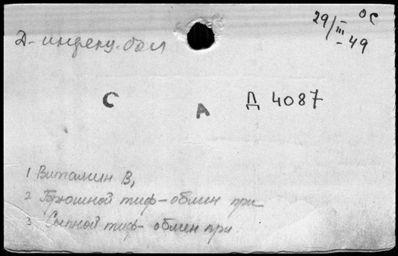 29/III-49 ОС
Д-инфекц. бол
С А Д 4087
1 Витамин В₁
2 Брюшной тиф-обмен при
3 Сыпной тиф-обмен при